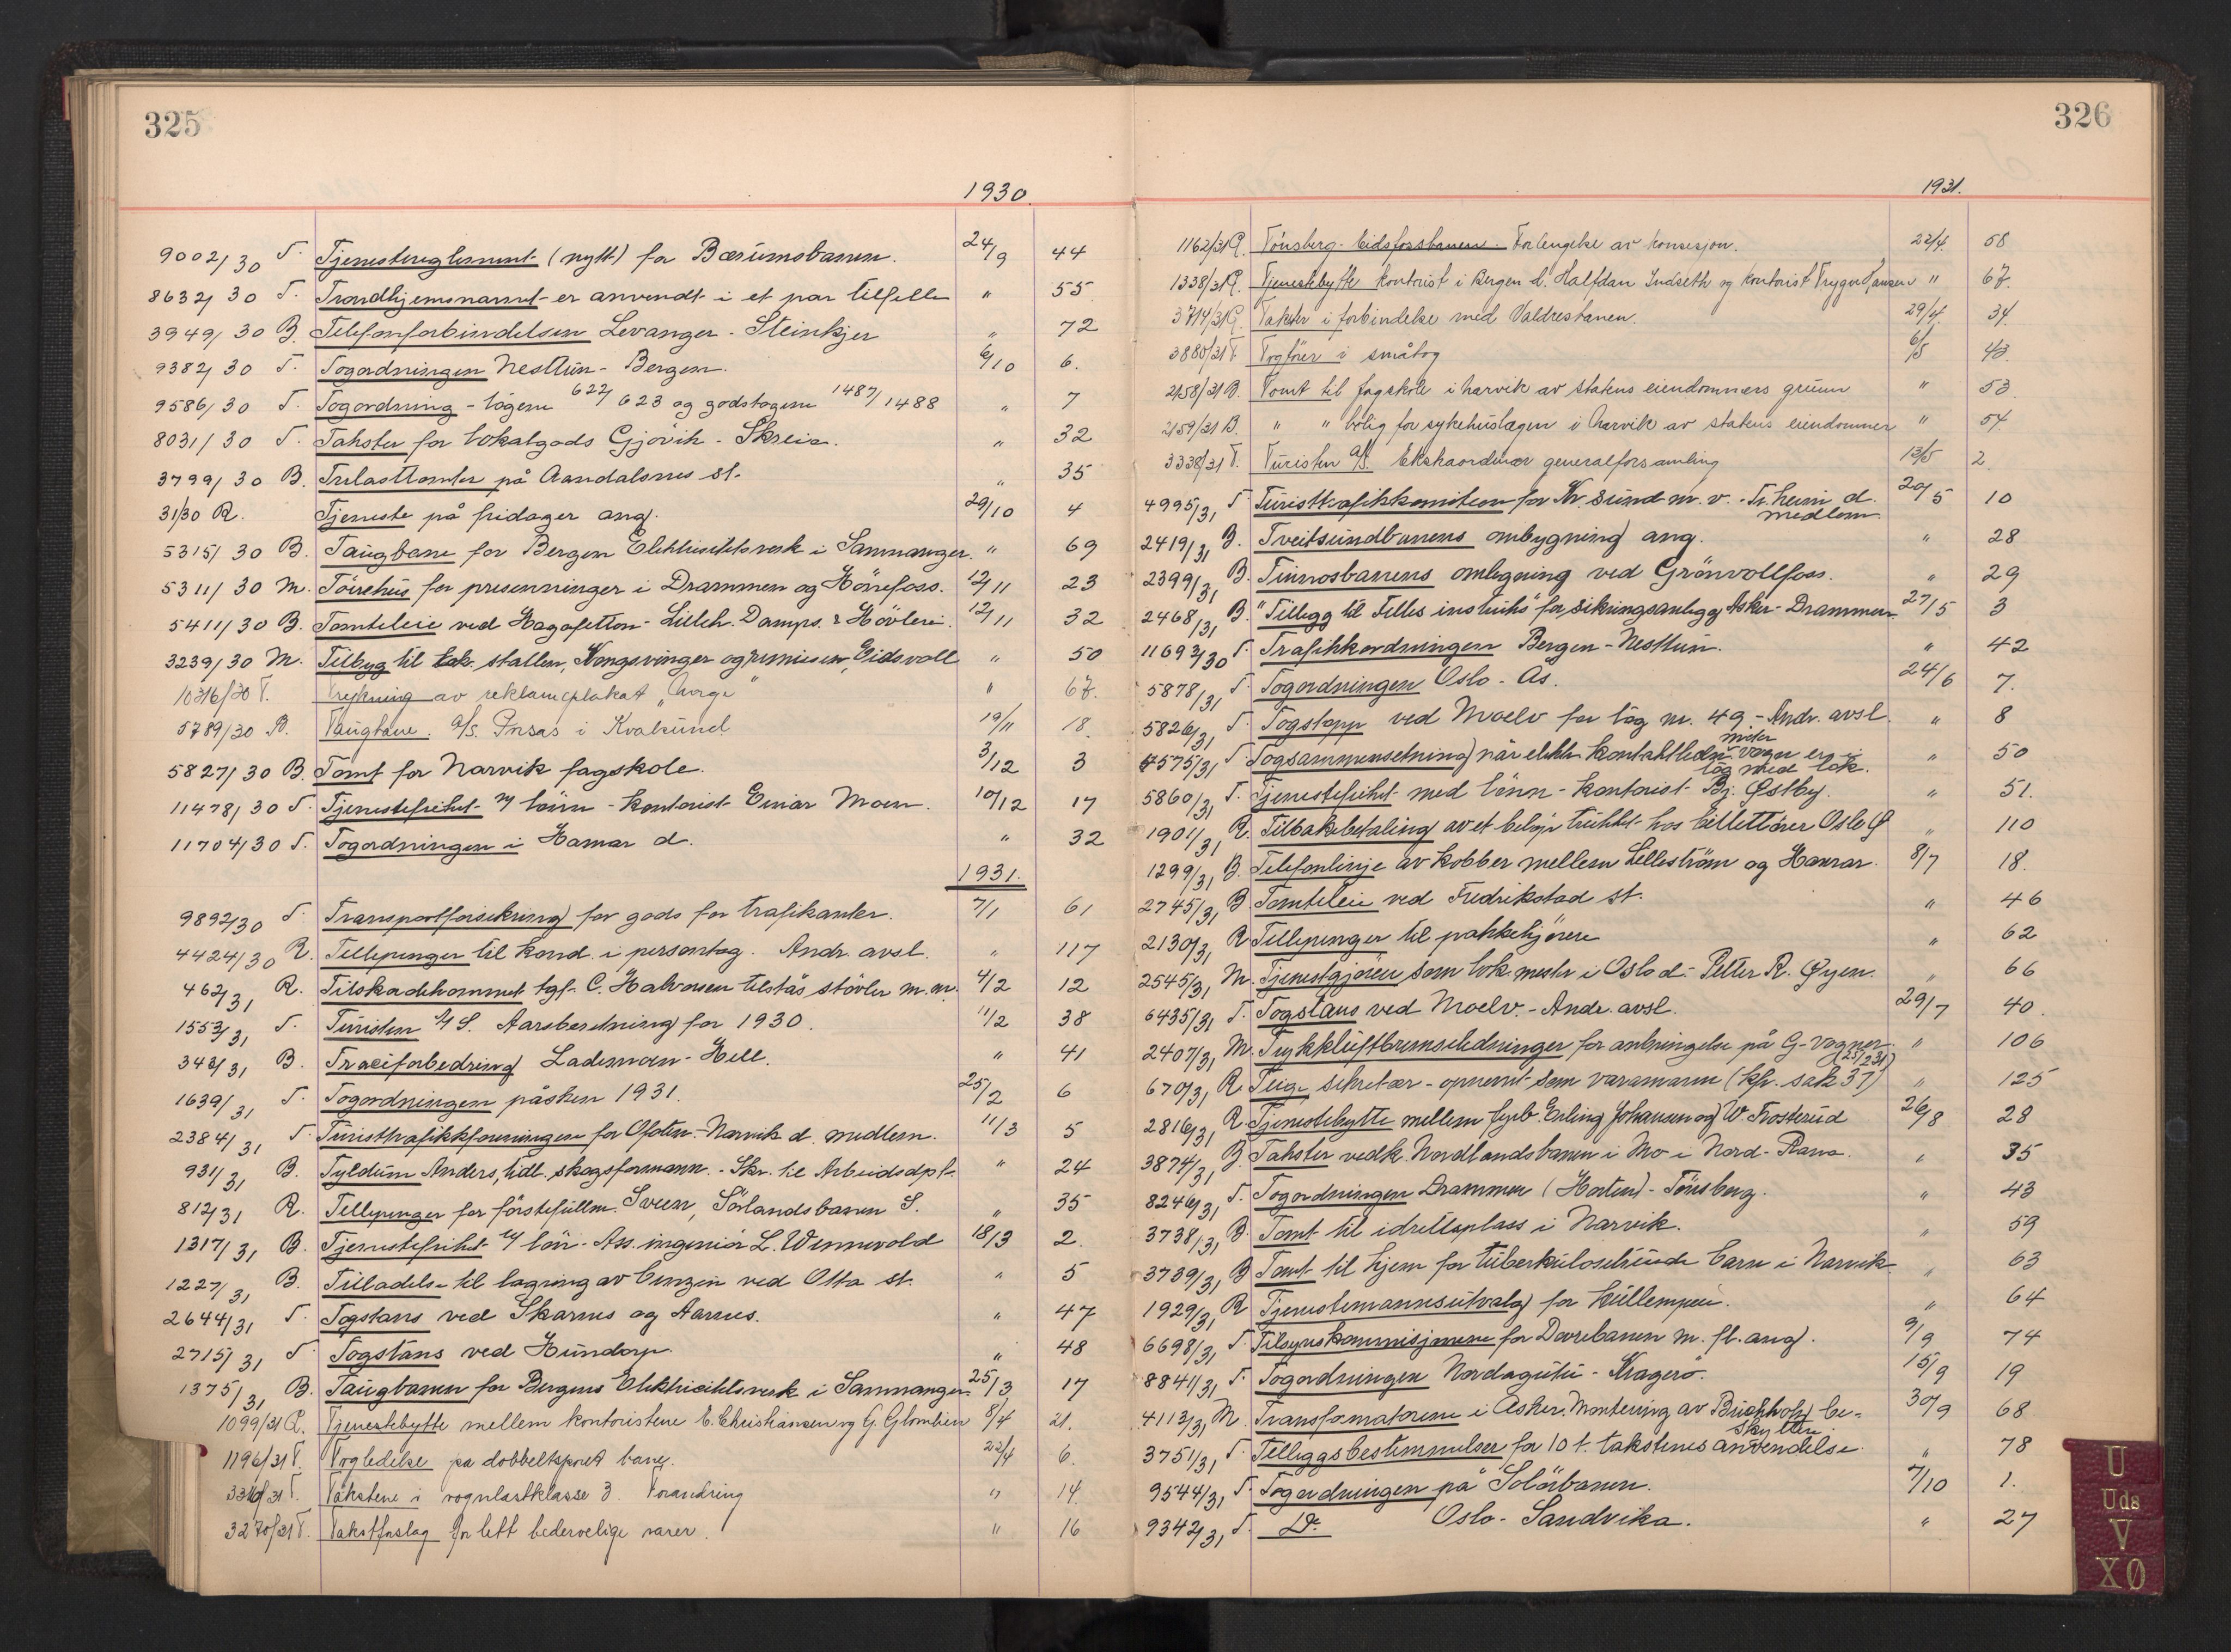 325
1930.
9002/30 T. Tjenestereglement (nytt) for Bærumsbanen. 24/9 44
8632/30 T. Trondhjemsnavnet er anvendt i et par tilfelle " 55
3949/30 B. Telefonforbindelsen Levanger - Steinkjer " 72
9382/30 T. Togordningen Nesttun - Bergen. 6/10 6.
9586/30 T. Togordning - togene 622/623 og godstogene 1487/1488 " 7
8031/30 T. Takster for lokalgods Gjövik - Skreia. " 32
3799/30 B. Trelasttomter på Aandalsnes st. " 35
31/30 R. Tjeneste på fridager ang. 29/10 4
5315/30 B. Taugbane for Bergen Elektrisitetsverk i Samnanger. " 69
5311/30 M. Törrehus for presenninger i Drammen og Hönefoss. 12/11 23
5411/30 B. Tomteleie ved Hagasletten - Lilleh. Damps. & Hövleri. 12/11 32
3239/30 M. Tilbyg til lok. stallen, Kongsvinger og remisen, Eidsvoll " 50
10316/30 T. Trykning av reklameplakat "Norge" " 67.
5789/30 B. Taugbane. A/S. Prisas i Kvalsund 19/11 18.
5827/30 B. Tomt for Narvik fagskole. 3/12 3
11478/30 T. Tjenestefrihet m/ lönn - kontorist Einar Moen. 10/12 17
11704/30 T. Togordningen i Hamar d. " 32
1931.
9892/30 T. Transportforsikring for gods for trafikanter. 7/1 61
4424/30 R. Tellepenger til kond. i persontog. Andr. avsl. " 117
462/31 R. Tilskadekommet tgf. C. Halvorsen tilstås stövler m.m. 4/2 12
1553/31 T. Turisten A/S. Aarsberetning for 1930. 11/2 38
343/31 B. Traceforbedring Lademoen - Hell. " 41
1639/31 T. Togordningen påsken 1931. 25/2 6
2384/31 T. Turisttrafikkforeningen for Ofoten - Narvik d. medlem. 11/3 5
931/31 B. Tyldum Anders, tidl. skogsformann. - Skr. til Arbeidsdpt. " 24
812/31 R. Tellepenger for förstefullm. Sveen, Sörlandsbanen S. " 35
1317/31 B. Tjenestefrihet m/ lön - Ass. ingeniör L. Wennevold 18/3 2.
1227/31 B. Tilladelse til lagring av benzin ved Otta st. " 5
2644/31 T. Togstans ved Skarnes og Aarnes. " 47
2715/31 T. Togstans ved Hundorp. " 48
1375/31 B. Taugbanen for Bergens Elektricitetsverk i Samnanger. 25/3 17
1099/31 R. Tjenestebytte mellem kontoristene E. Christiansen og G. Glombien 8/4 21.
1196/31 T. Togledelse på dobbeltsporet bane. 22/4 6.
3316/31 T. Takstene i vognlastklasse 3. Forandring " 14.
3270/31 T. Takstforslag for lett bedervelige varer. " 16
326
1931.
1162/31 R. Tönsberg - Eidsfossbanen. Forlengelse av konsesjon. 22/4. 58
1338/31 R. Tjenestebytte kontorist i Bergen d. Halfdan Indseth og kontorist Trygve Hansen " 67.
3714/31 G. Takster i forbindelse med Valdresbanen. 29/4. 34.
3880/31 T. Togförer i småtog 6/5 43.
2158/31 B. Tomt til fagskole i Narvik av statens eiendommers grunn " 53.
2159/31 B. " " bolig for sykehuslægen i Narvik av statens eiendommer " 54.
3338/31 T. Turisten A/S. Ekstraordinær generalforsamling 13/5 2.
4995/31 T. Turisttrafikkomiteen for Kr. sund m. v. - Tr.heim d. medlem 20/5 10
2419/31 B. Treitsundbanens ombygning ang. " 28
2399/31 B. Tinnosbanens omlegning ved Grönvollfoss. " 29
2468/31 B. "Tillegg til Felles instruks" for sikringsanlegg Asker - Drammen. 27/5 3
11693/30 T. Trafikkordningen Bergen - Nesttun. " 42
5878/31 T. Togordningen Oslo - As. 24/6 7.
5826/31 T. Togstopp ved Moelv for tog nr. 49. - Andr. avsl. " 8
4575/31 T. Togsammensetning når elektr. kontaktledn. vogn er i tog med lok. " 50
5860/31 T. Tjenestefrihet med lönn - kontorist Bj. Østby. " 51.
1901/31 R. Tilbakebetaling av et belöp trukket hos billettörer Oslo Ø " 110
1299/31 B. Telefonlinje av kobber mellem Lilleström og Hamar. 8/7 18.
2745/31 B. Tomteleie ved Fredrikstad st. " 46
2130/31 R. Tellepenger til pakkekjörere " 62
2545/31 M. Tjenestgjören som lok.mester i Oslo d. - Petter R. Øyen. " 66
6435/31 T. Togstans ved Moelv. - Andr. avsl. 29/7 40.
2407/31 M. Trykkluftbremseledninger for anbringelse på G-vogner. " 106
670/31 R. Teige, sekretær - opnevnt som varamann (kfr. sak 37) (25/2 31) " 125
2816/31 R. Tjenestebytte mellem fyrb. Erling Johansen og W. Frosterud 26/8 28
3874/31 B. Takster vedk. Nordlandsbanen i Mo i Nord-Rana. " 35
8246/31 T. Togordningen Drammen (Horten) - Tönsberg. " 43
3738/31 B. Tomt til idrettsplass i Narvik. " 59
3739/31 B. Tomt til hjem for tuberkulosetruede barn i Narvik. " 63
1929/31 R. Tjenestemannsutvalg for " 64
6698/31 T. Tilsynskommisjonene for Dovrebanen m. fl. ang. 9/9 74
8841/31 T. Togordningen Nordagutu - Kragerö. 15/9 19
4113/31 M. Transformatorene i Asker. Montering av Buchholz be- skyttere 30/9 68
3751/31 T. Tilleggsbestemmelser for 10 t. takstenes anvendelse. " 78
9544/31 T. Togordningen på Solörbanen. 7/10 1.
9342/31 T. Do Oslo - Sandvika. " 27
U
Uds
V
XØ